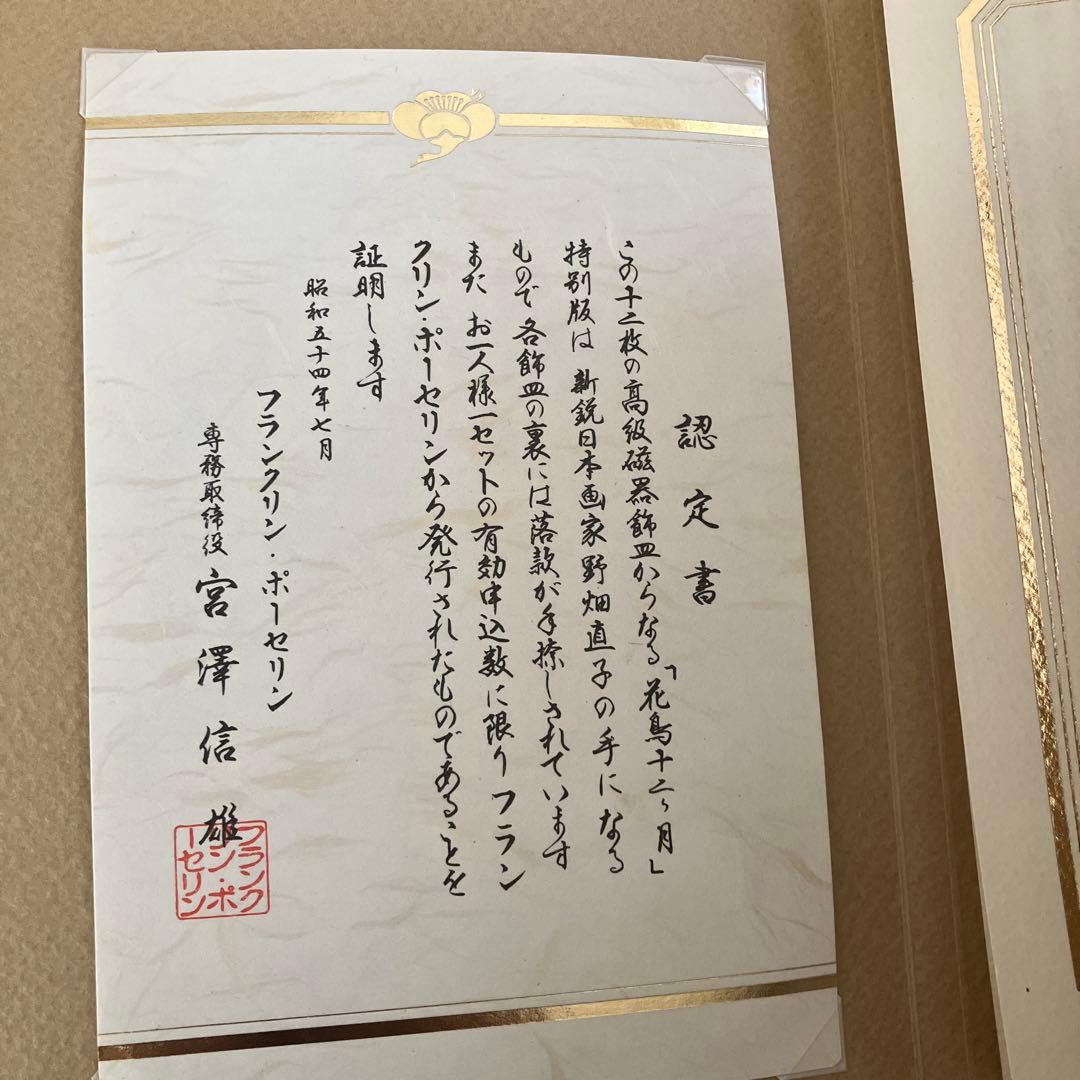 認定書
この十二枚の高級磁器飾皿からなる「花鳥十二ヶ月」
特別版は 新鋭日本画家野畑直子の手になる
もので 各飾皿の裏には落款が手捺しされています
また お一人様一セットの有効申込数に限り フラン
クリン・ポーセリンから発行されたものであることを
証明します
昭和五十四年七月
フランクリン・ポーセリン
専務取締役 宮澤信雄
フランク
リン・ポ
ーセリン